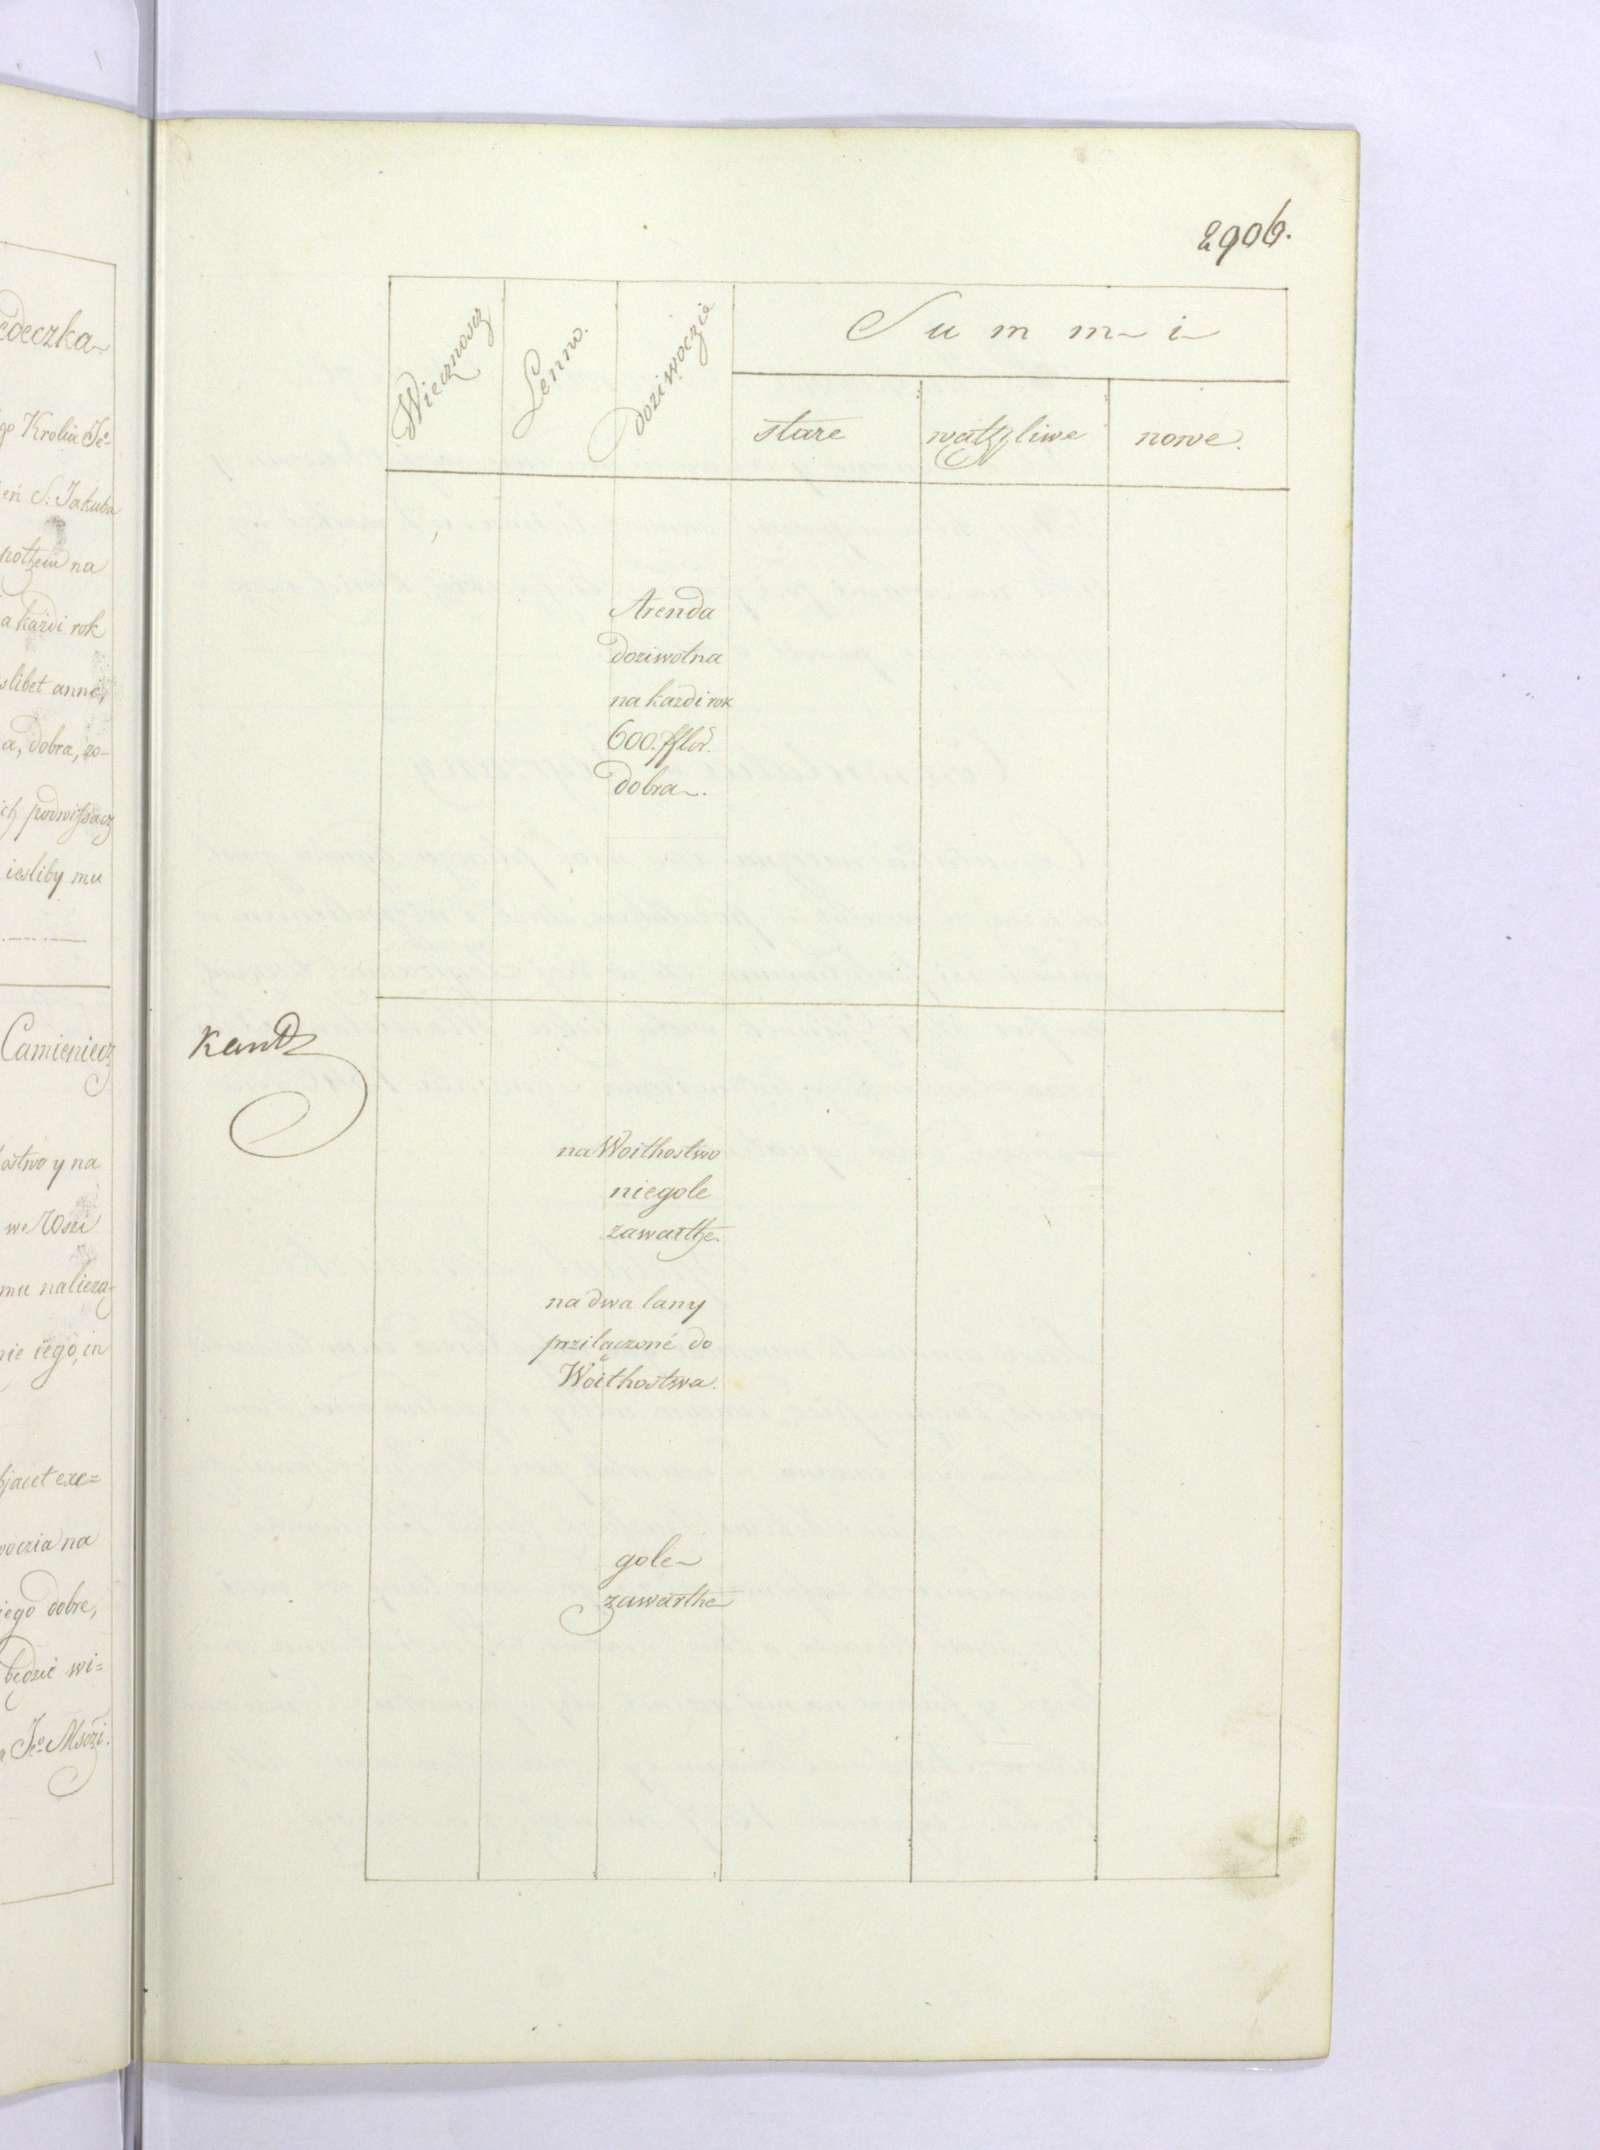 edeczka
go Krolia Je°
eń S: Jakuba
na
a każdi rok
slibet anno,
a, dobra, zo-
ich podwissacz
iesliby mu
Camieniecz
ostwo y na
we Wszi
mu nalieza-
nie iego, in
bjacet exe=
woczia na
iego dobre,
będzie wi=
a Je° Mśczi.
2906.
Wiecznoscz
Lenno.
Doziwoczie
Summi
stare
wątpliwe
nowe.
Arenda
doziwotna
na kazdi rok
600. fflor.
dobra.
Kantz
na Woithostwo
niegole
zawarthe.
na dwa lany
przilączoné do
Woithostwa.
gole
zawarthe